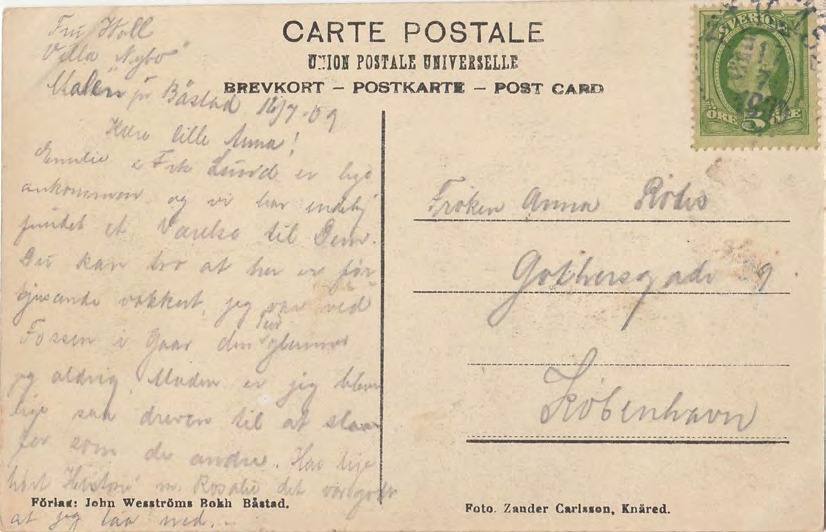 CARTE POSTALE
UNION POSTALE UNIVERSELLE
BREVKORT – POSTKARTE – POST CARD
Fru Woll
Villa "Nybo"
Malen pr Båstad 16/7-09
Kære lille Anna!
Emilie & Frk Lund er lige
ankommen og vi har endelig
fundet et Værelse til Dem.
Du kan tro at her er for
tjusande vakkert, jeg var ved
Fossen i Gaar den glemmer
jeg aldrig. Maden er jeg bleven
lige saa dreven til at slaa
som de andre. Har lige
hørt Historie m. Rosalie det var godt
at jeg laa ned.
SVERIGE
ÖRE 5 ÖRE
Frøken Anna
Gothersgade 9
København
Förlag: John Wesströms Bokh Båstad.
Foto. Zander Carlsson, Knäred.